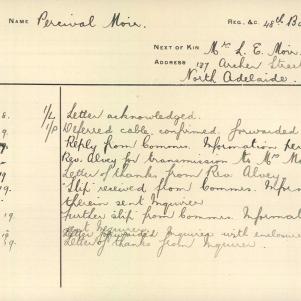 NAME Percival Moir. REG. &C. 48th Ba
NEXT OF KIN Mrs L. E. Moir
ADDRESS 127 Archer Street
North Adelaide.
8. 1/L Letter acknowledged.
9. 1/P Deferred cable, confirmed, forwarded
9. Reply from Commrs. Information her
Rev. Alvey for transmission to Mrs Mo
19. Letter of thanks from Rev. Alvey
19. Slip received from Commrs. Inform
therein sent Inquirer
19. Further slip from Commrs. Informat
sent Inquirer
19. Letter forwarded Inquirer with enclosure
19. Letter of thanks from Inquirer.